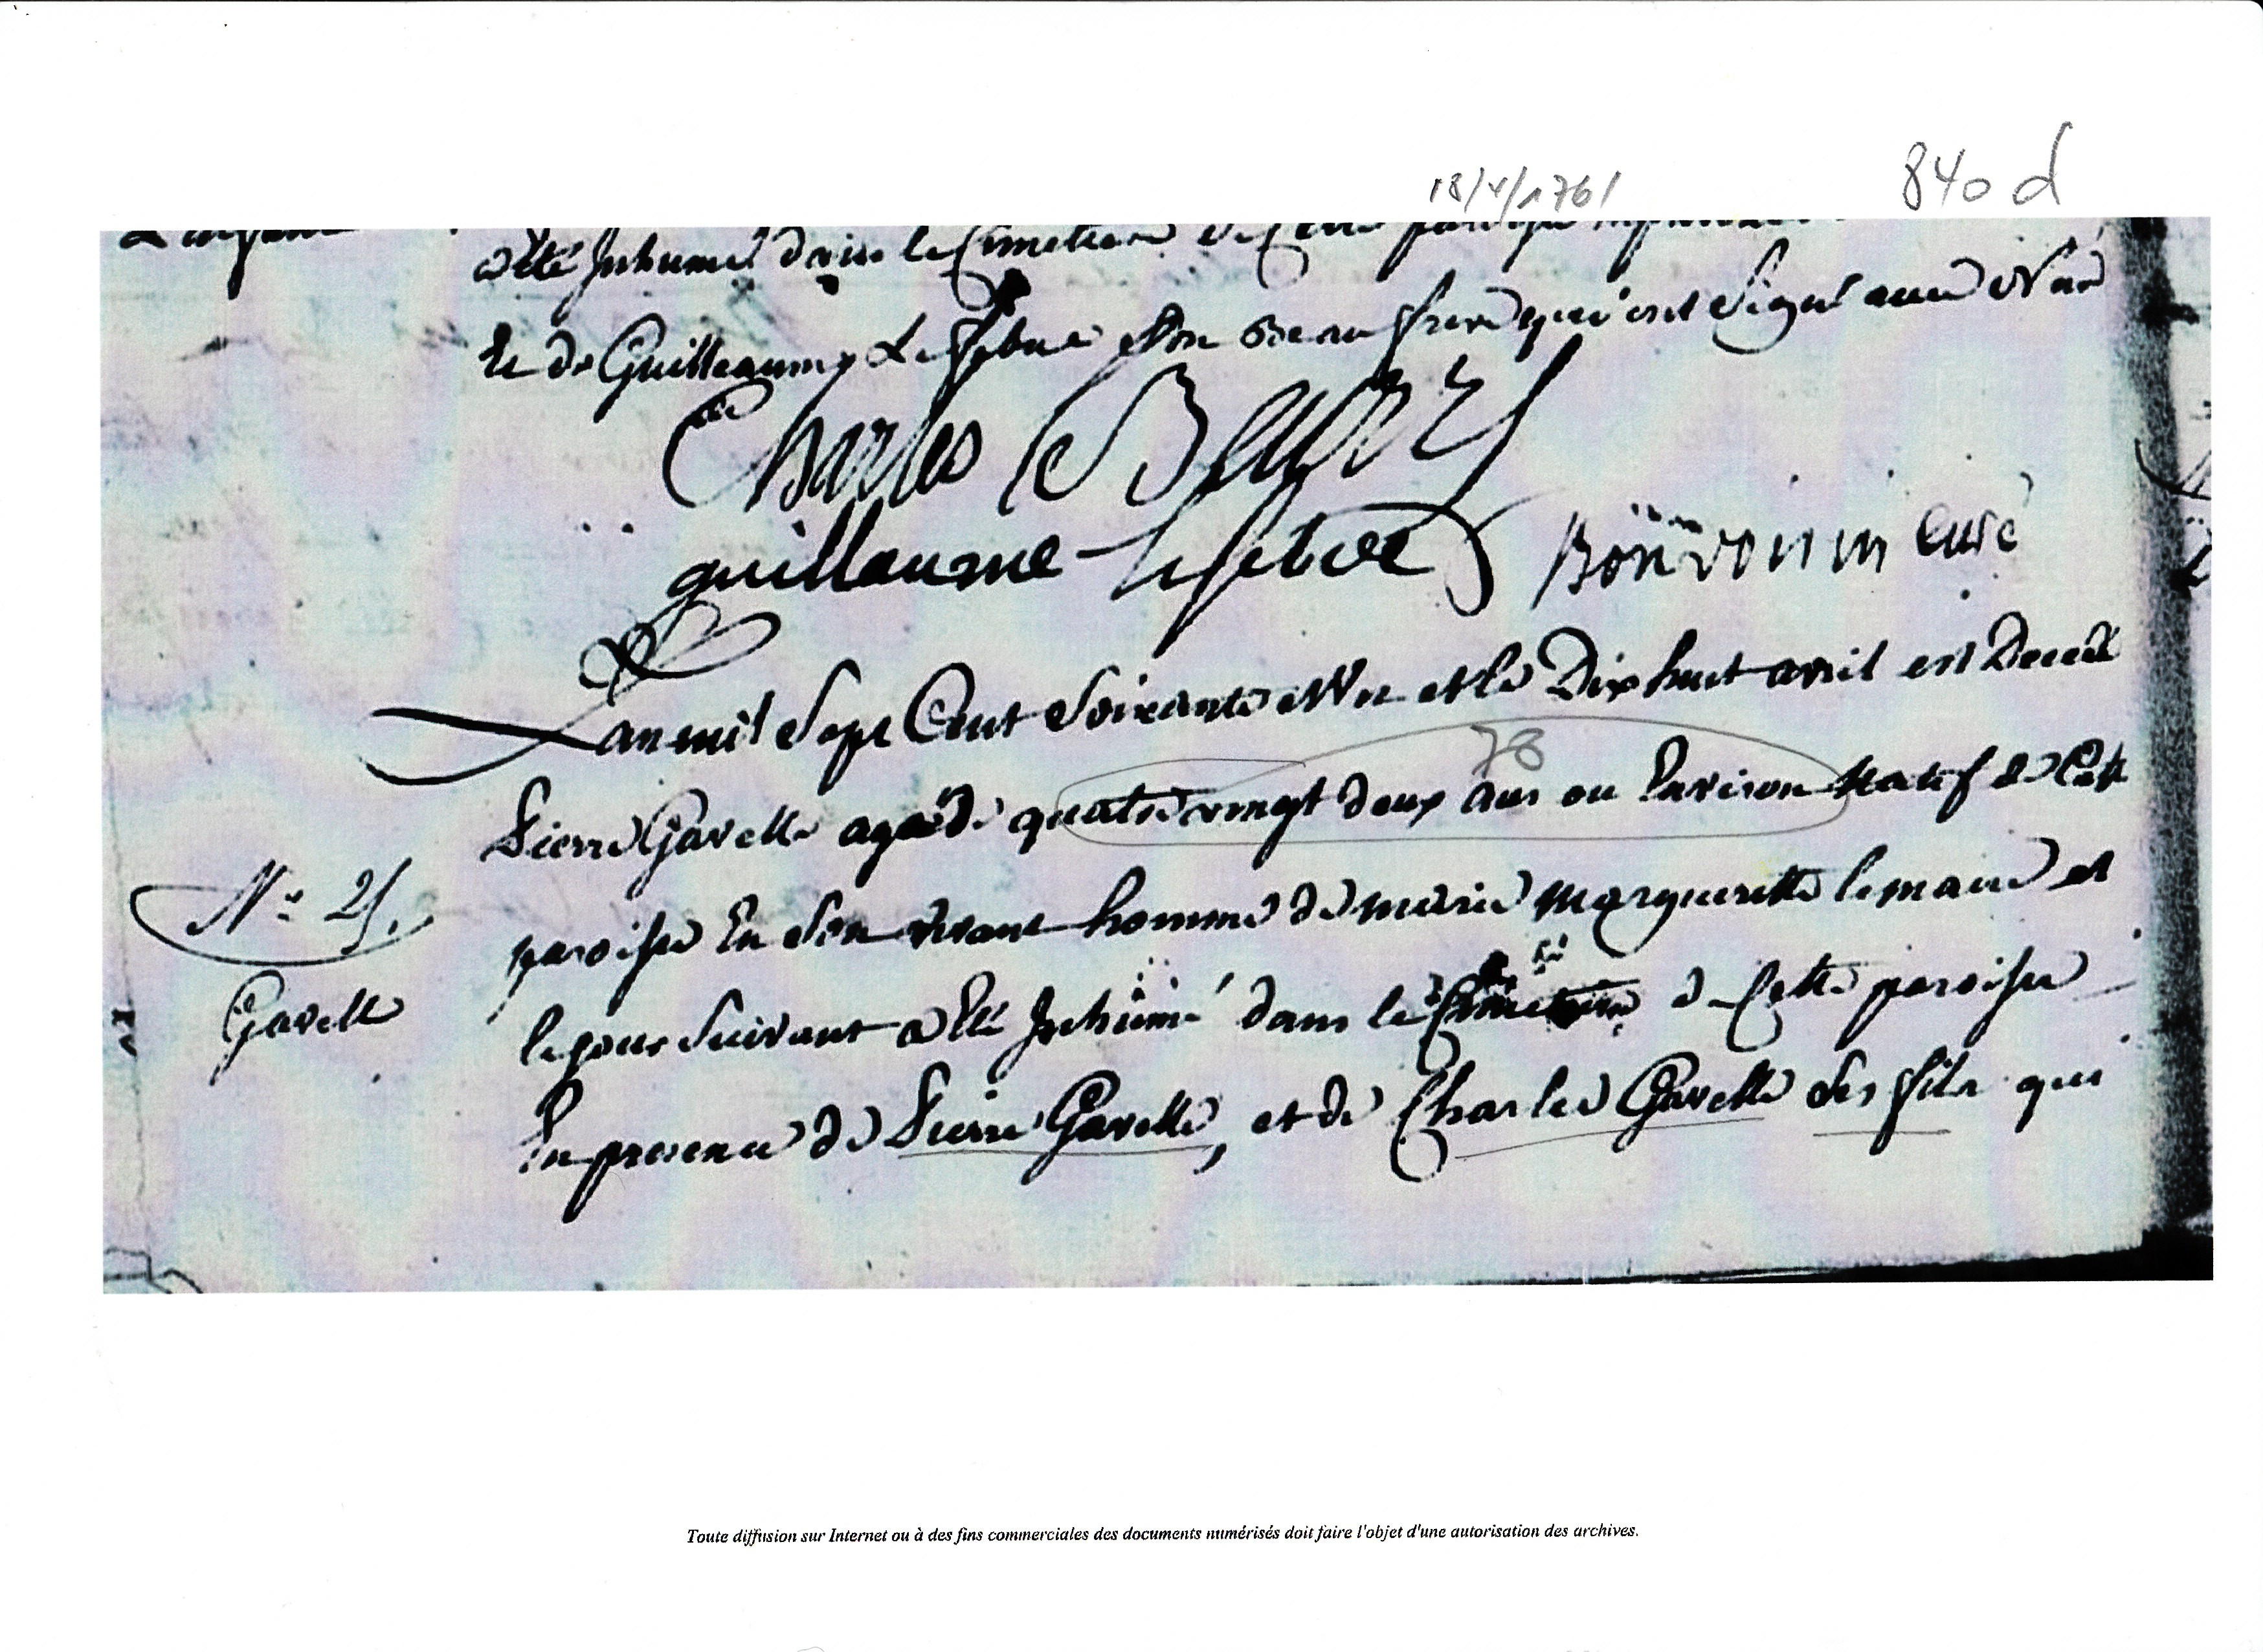 18/4/1761
840 d
a été Inhumé dans le Cimetiere de Cette paroisse
Et de Guilleaume Lefebvre son beau frere qui ont signé avec Nous
Charles le
guillaume lefebvre Bonvoisin curé
Lan mil Sept Cent Soixante et Un et le Dix huit avril est Decedé
78
Pierre Gavelle agé de quatre vingt deux ans ou Environ Natif de Cette
paroisse En Son vivant homme de marie margueritte lemaire et
N° 25.
le jour Suivant a Eté Inhümé dans le Cimetiere de Cette paroisse
Gavelle
En presence de Pierre Gavelle, et de Charles Gavelle Ses fils qui
Toute diffusion sur Internet ou à des fins commerciales des documents numérisés doit faire l'objet d'une autorisation des archives.